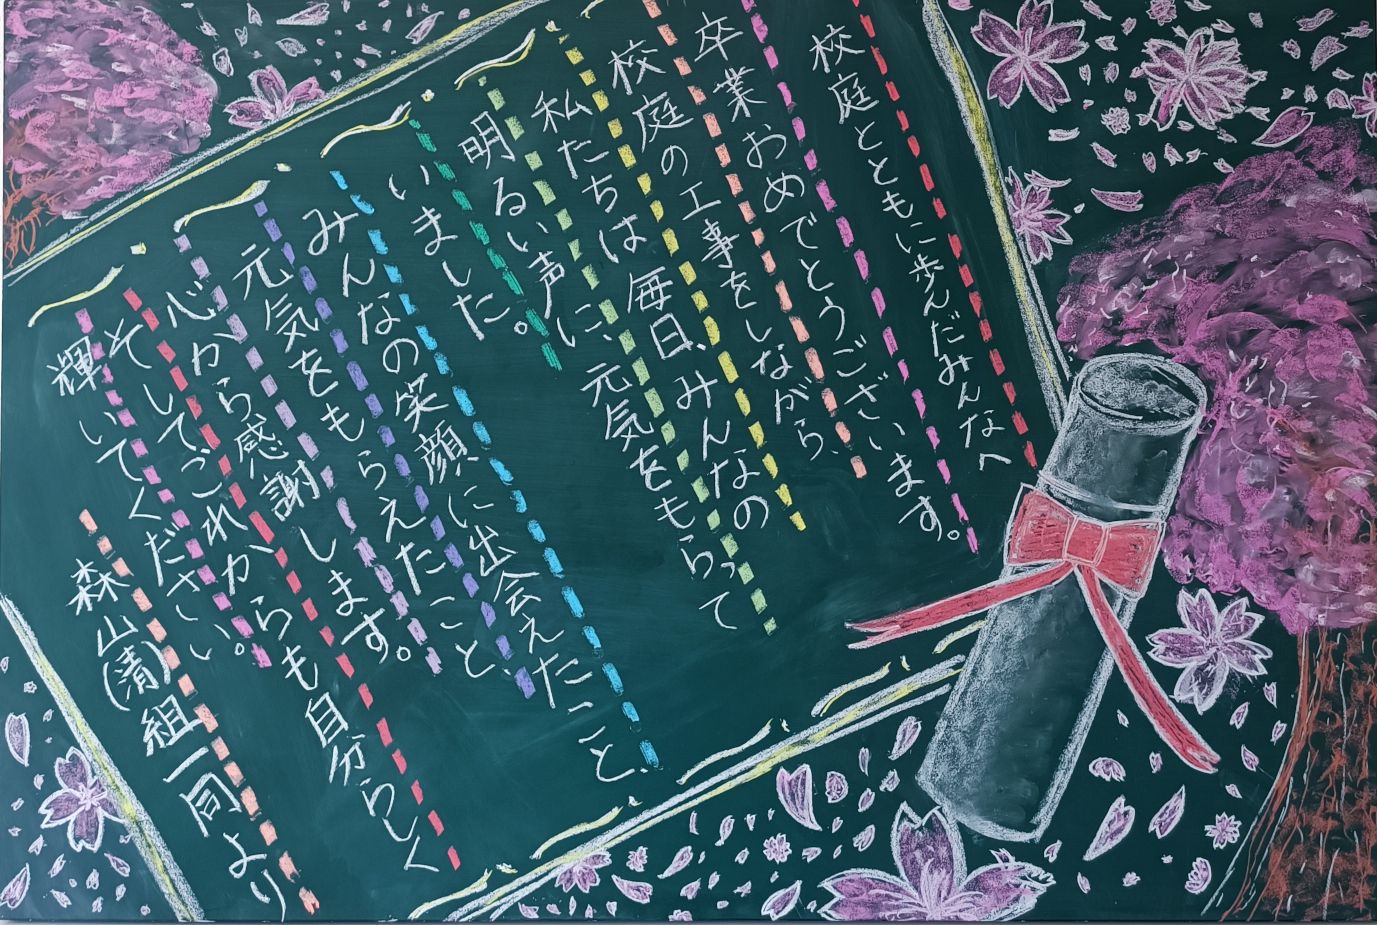 校庭とともに歩んだみんなへ
卒業おめでとうございます。
校庭の工事をしながら、
私たちは毎日、みんなの
明るい声に、元気をもらって
いました。
みんなの笑顔に出会えたこと、
元気をもらえたこと、
心から感謝します。
そしてこれからも自分らしく
輝いてください。
森山(清)組一同より